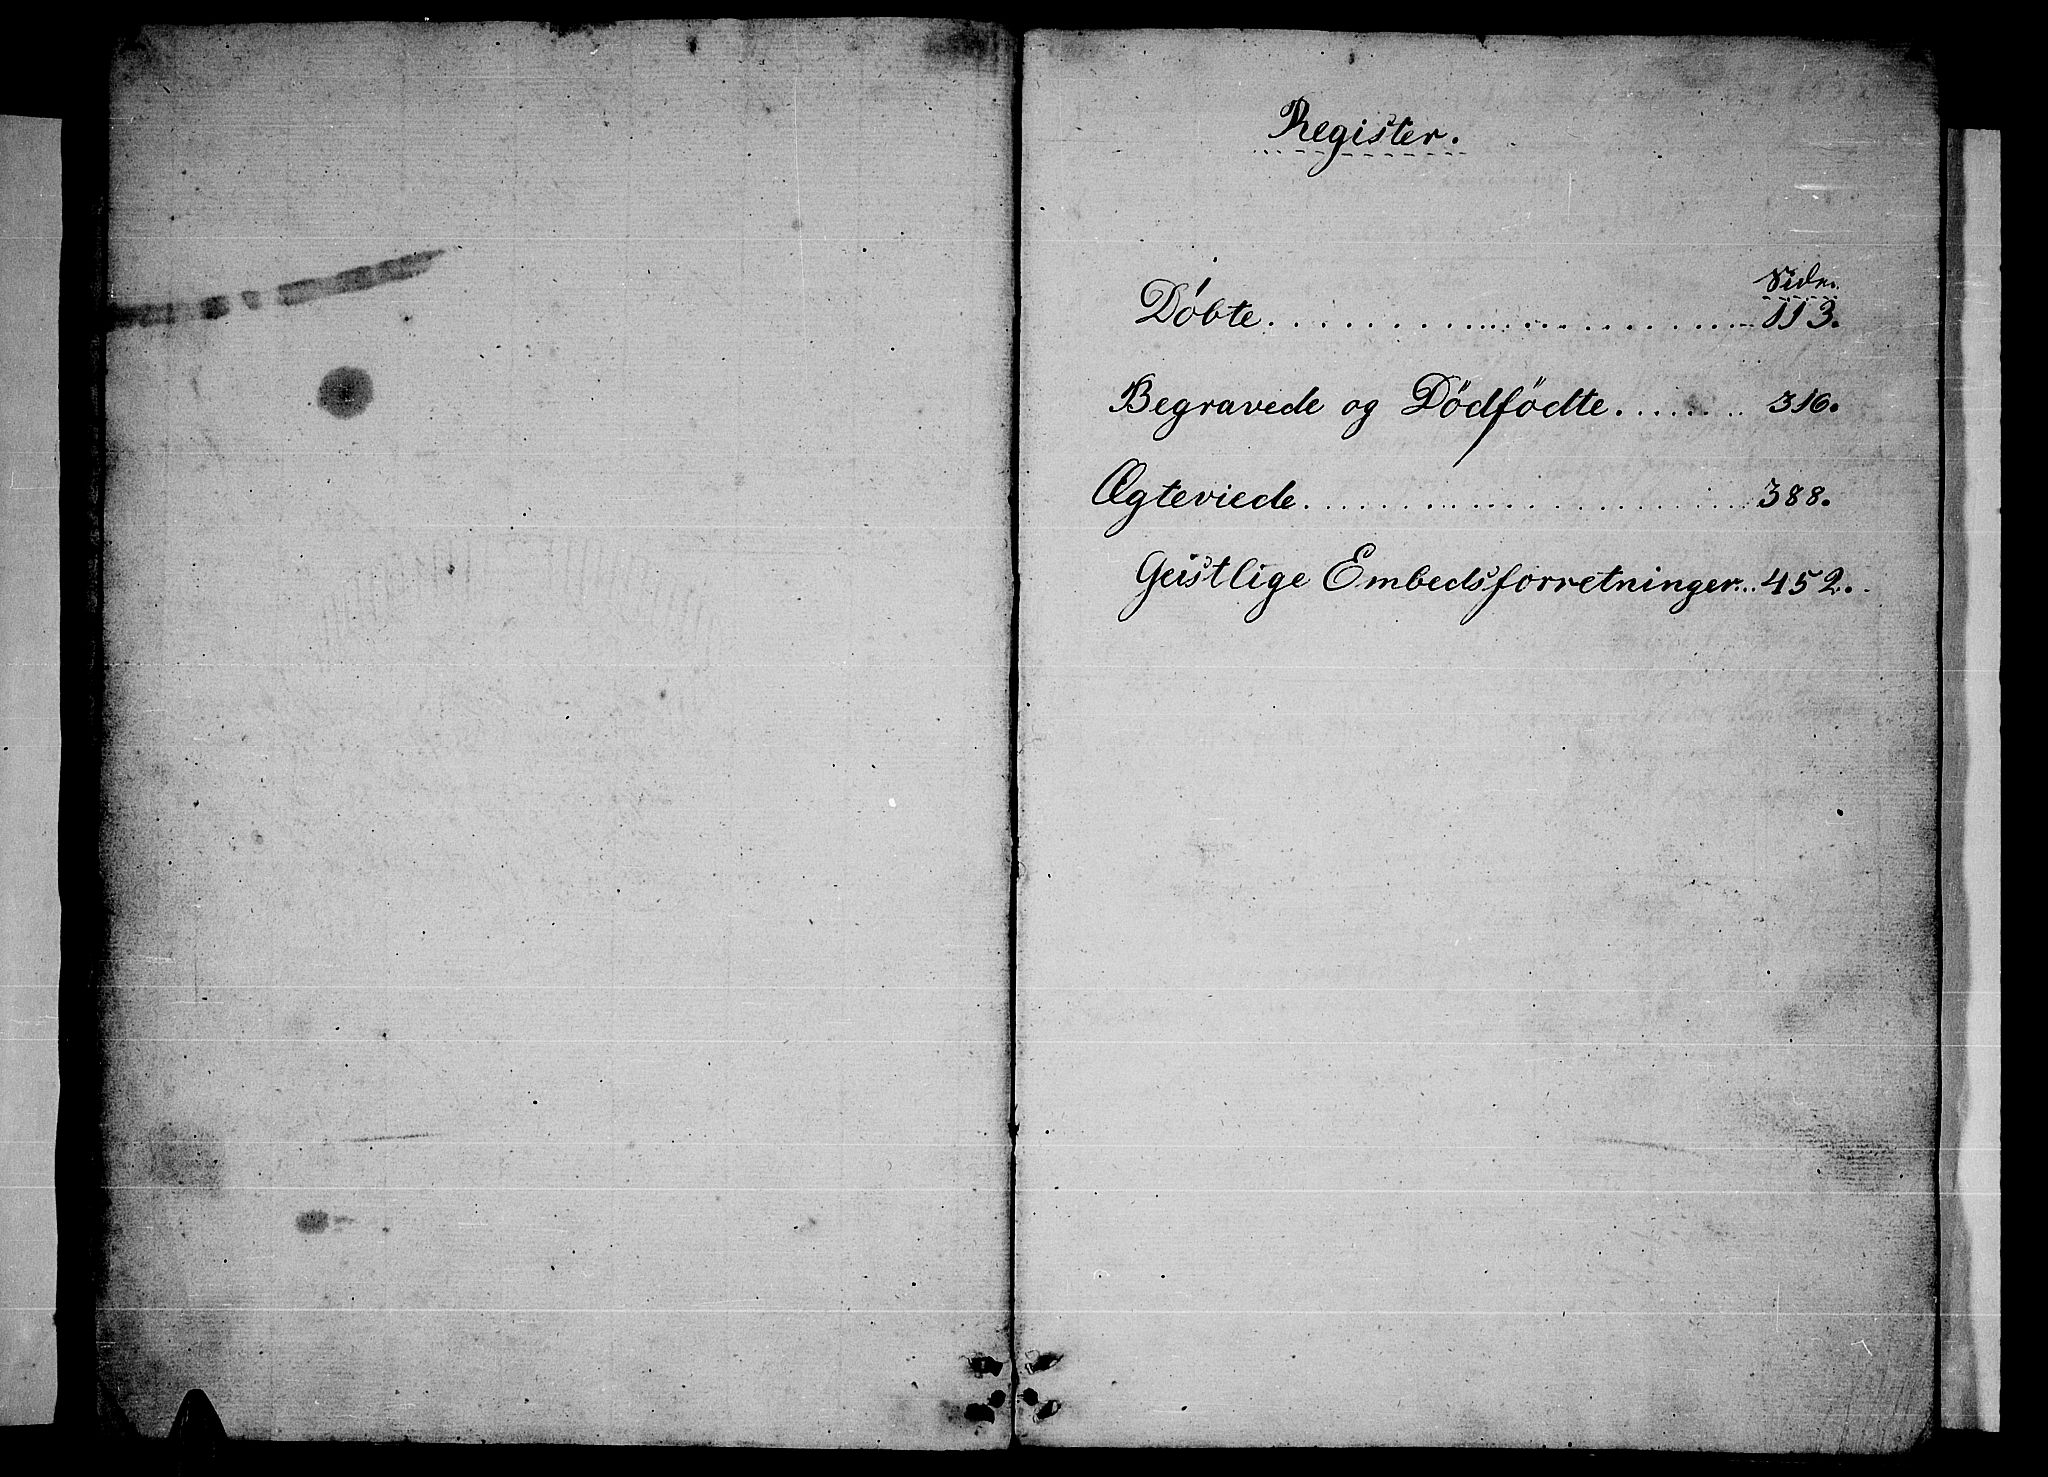 Register.
Side.
Döbte. 113.
Begravede og Dödfödte. 316.
Ægteviede. 388.
Geistlige Embedsforretninger. 452.